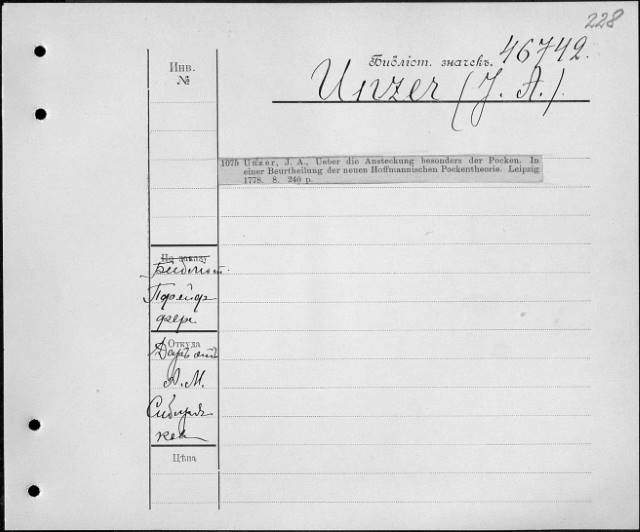 228
Инв.
№
Библіот. значекъ.
46742.
Unzer (J. A.).
1075 Unzer, J. A., Ueber die Ansteckung besonders der Pocken. In
einer Beurtheilung der neuen Hoffmannischen Pockentheorie. Leipzig
1778. 8. 240 p.
По заказу
Библіот.
Пфейф
фера
Откуда
Даръ отъ
А. М.
Сибиря
кова
Цѣна